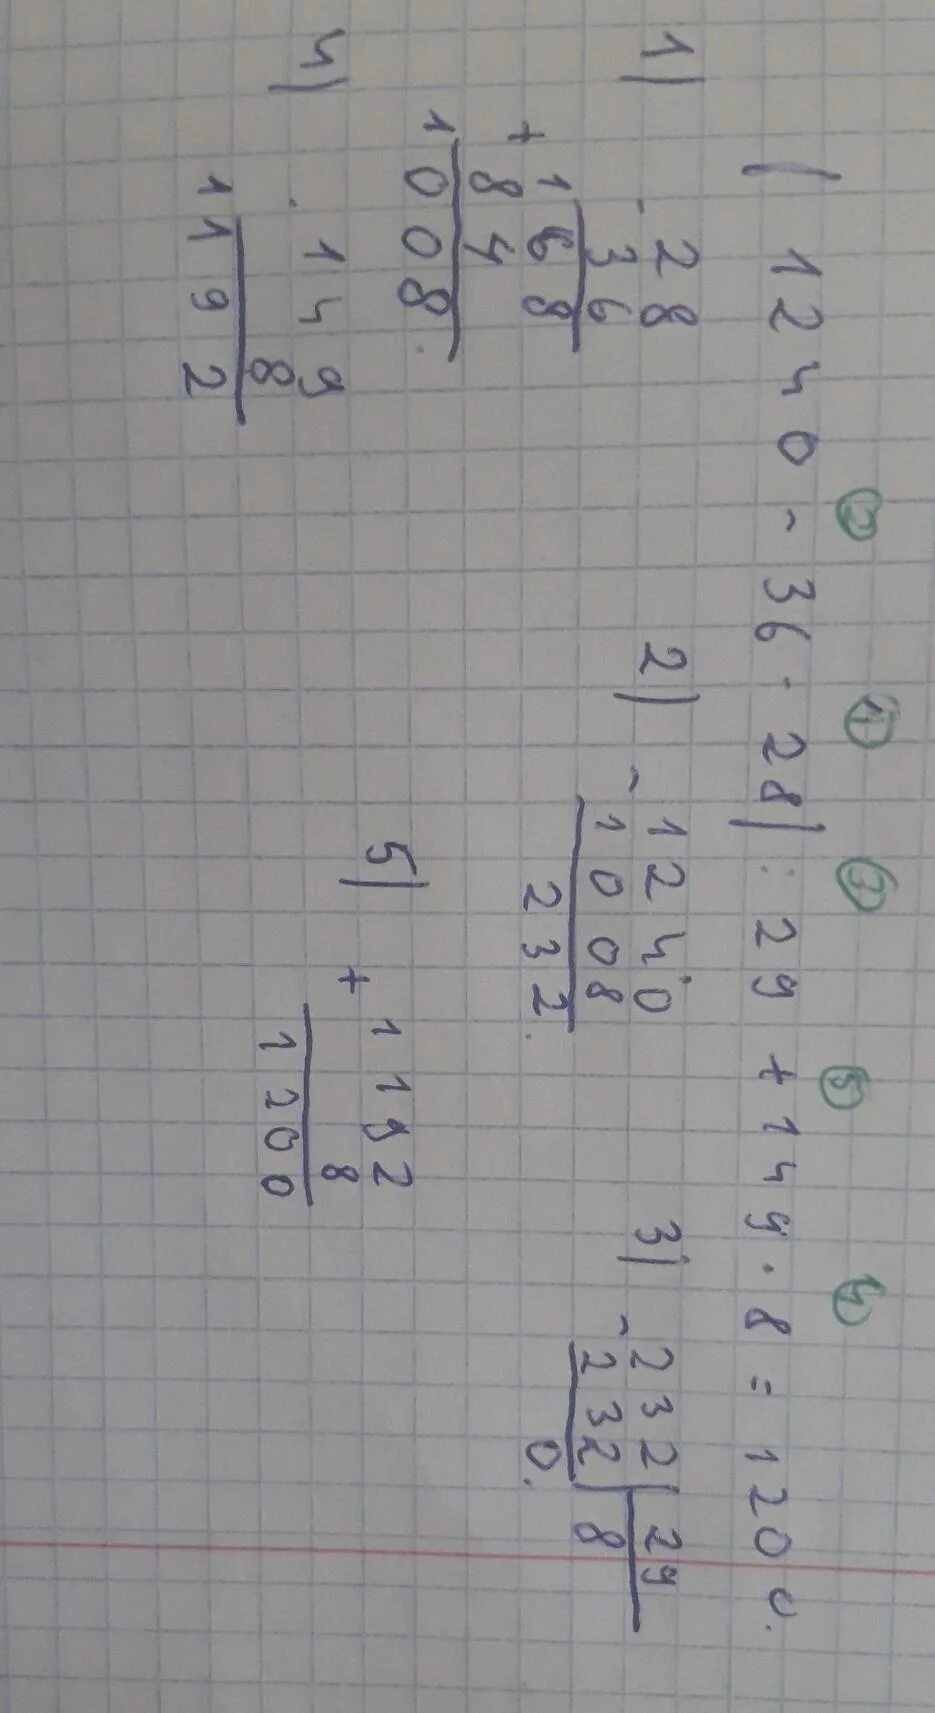 ② ① ③ ⑤ ④
(1240 - 36 · 28) : 29 + 149 · 8 = 1200.
1) 28
- 36
168
+ 84
1008.
2) - 1240
1008
232.
3) - 232 | 29
232 | 8
0.
4) · 149
8
1192
5) + 1192
8
1200